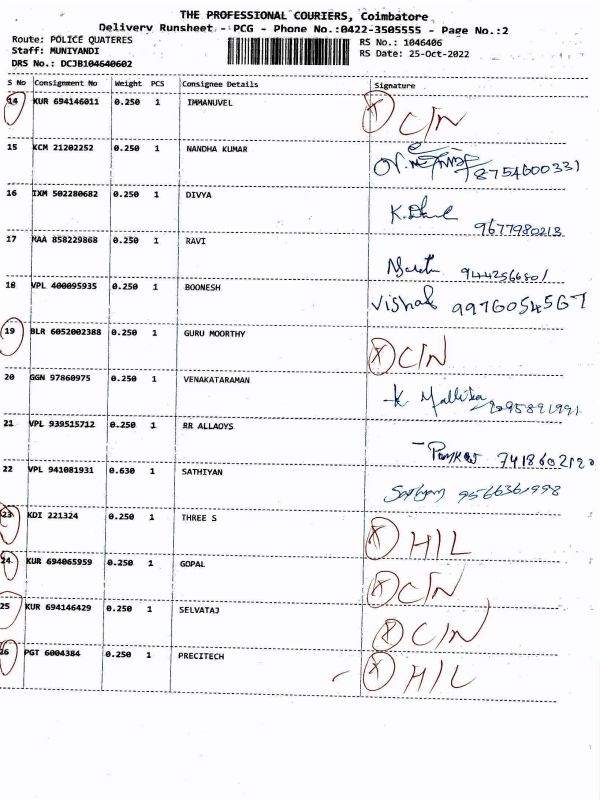 THE PROFESSIONAL COURIERS, Coimbatore
Delivery Runsheet - PCG - Phone No.:0422-3505555 - Page No.:2
Route: POLICE QUATERES
RS No.: 1046406
Staff: MUNIYANDI
RS Date: 25-Oct-2022
DRS No.: DCJB104640602
S No Consignment No Weight PCS Consignee Details Signature
14 KUR 694146011 0.250 1 IMMANUVEL X C/N
15 KCM 21202252 0.250 1 NANDHA KUMAR 8754600331
16 IXM 502280682 0.250 1 DIVYA 9677980213
17 MAA 858229868 0.250 1 RAVI
18 VPL 400095935 0.250 1 BOONESH Vishal 9976054567
19 BLR 6052002388 0.250 1 GURU MOORTHY X C/N
20 GGN 97860975 0.250 1 VENAKATARAMAN K Mallika
21 VPL 939515712 0.250 1 RR ALLAOYS
22 VPL 941081931 0.630 1 SATHIYAN 9566361998
23 KDI 221324 0.250 1 THREE S X H/L
24 KUR 694065959 0.250 1 GOPAL X C/N
25 KUR 694146429 0.250 1 SELVATAJ X C/N
26 PGT 6004384 0.250 1 PRECITECH X H/L